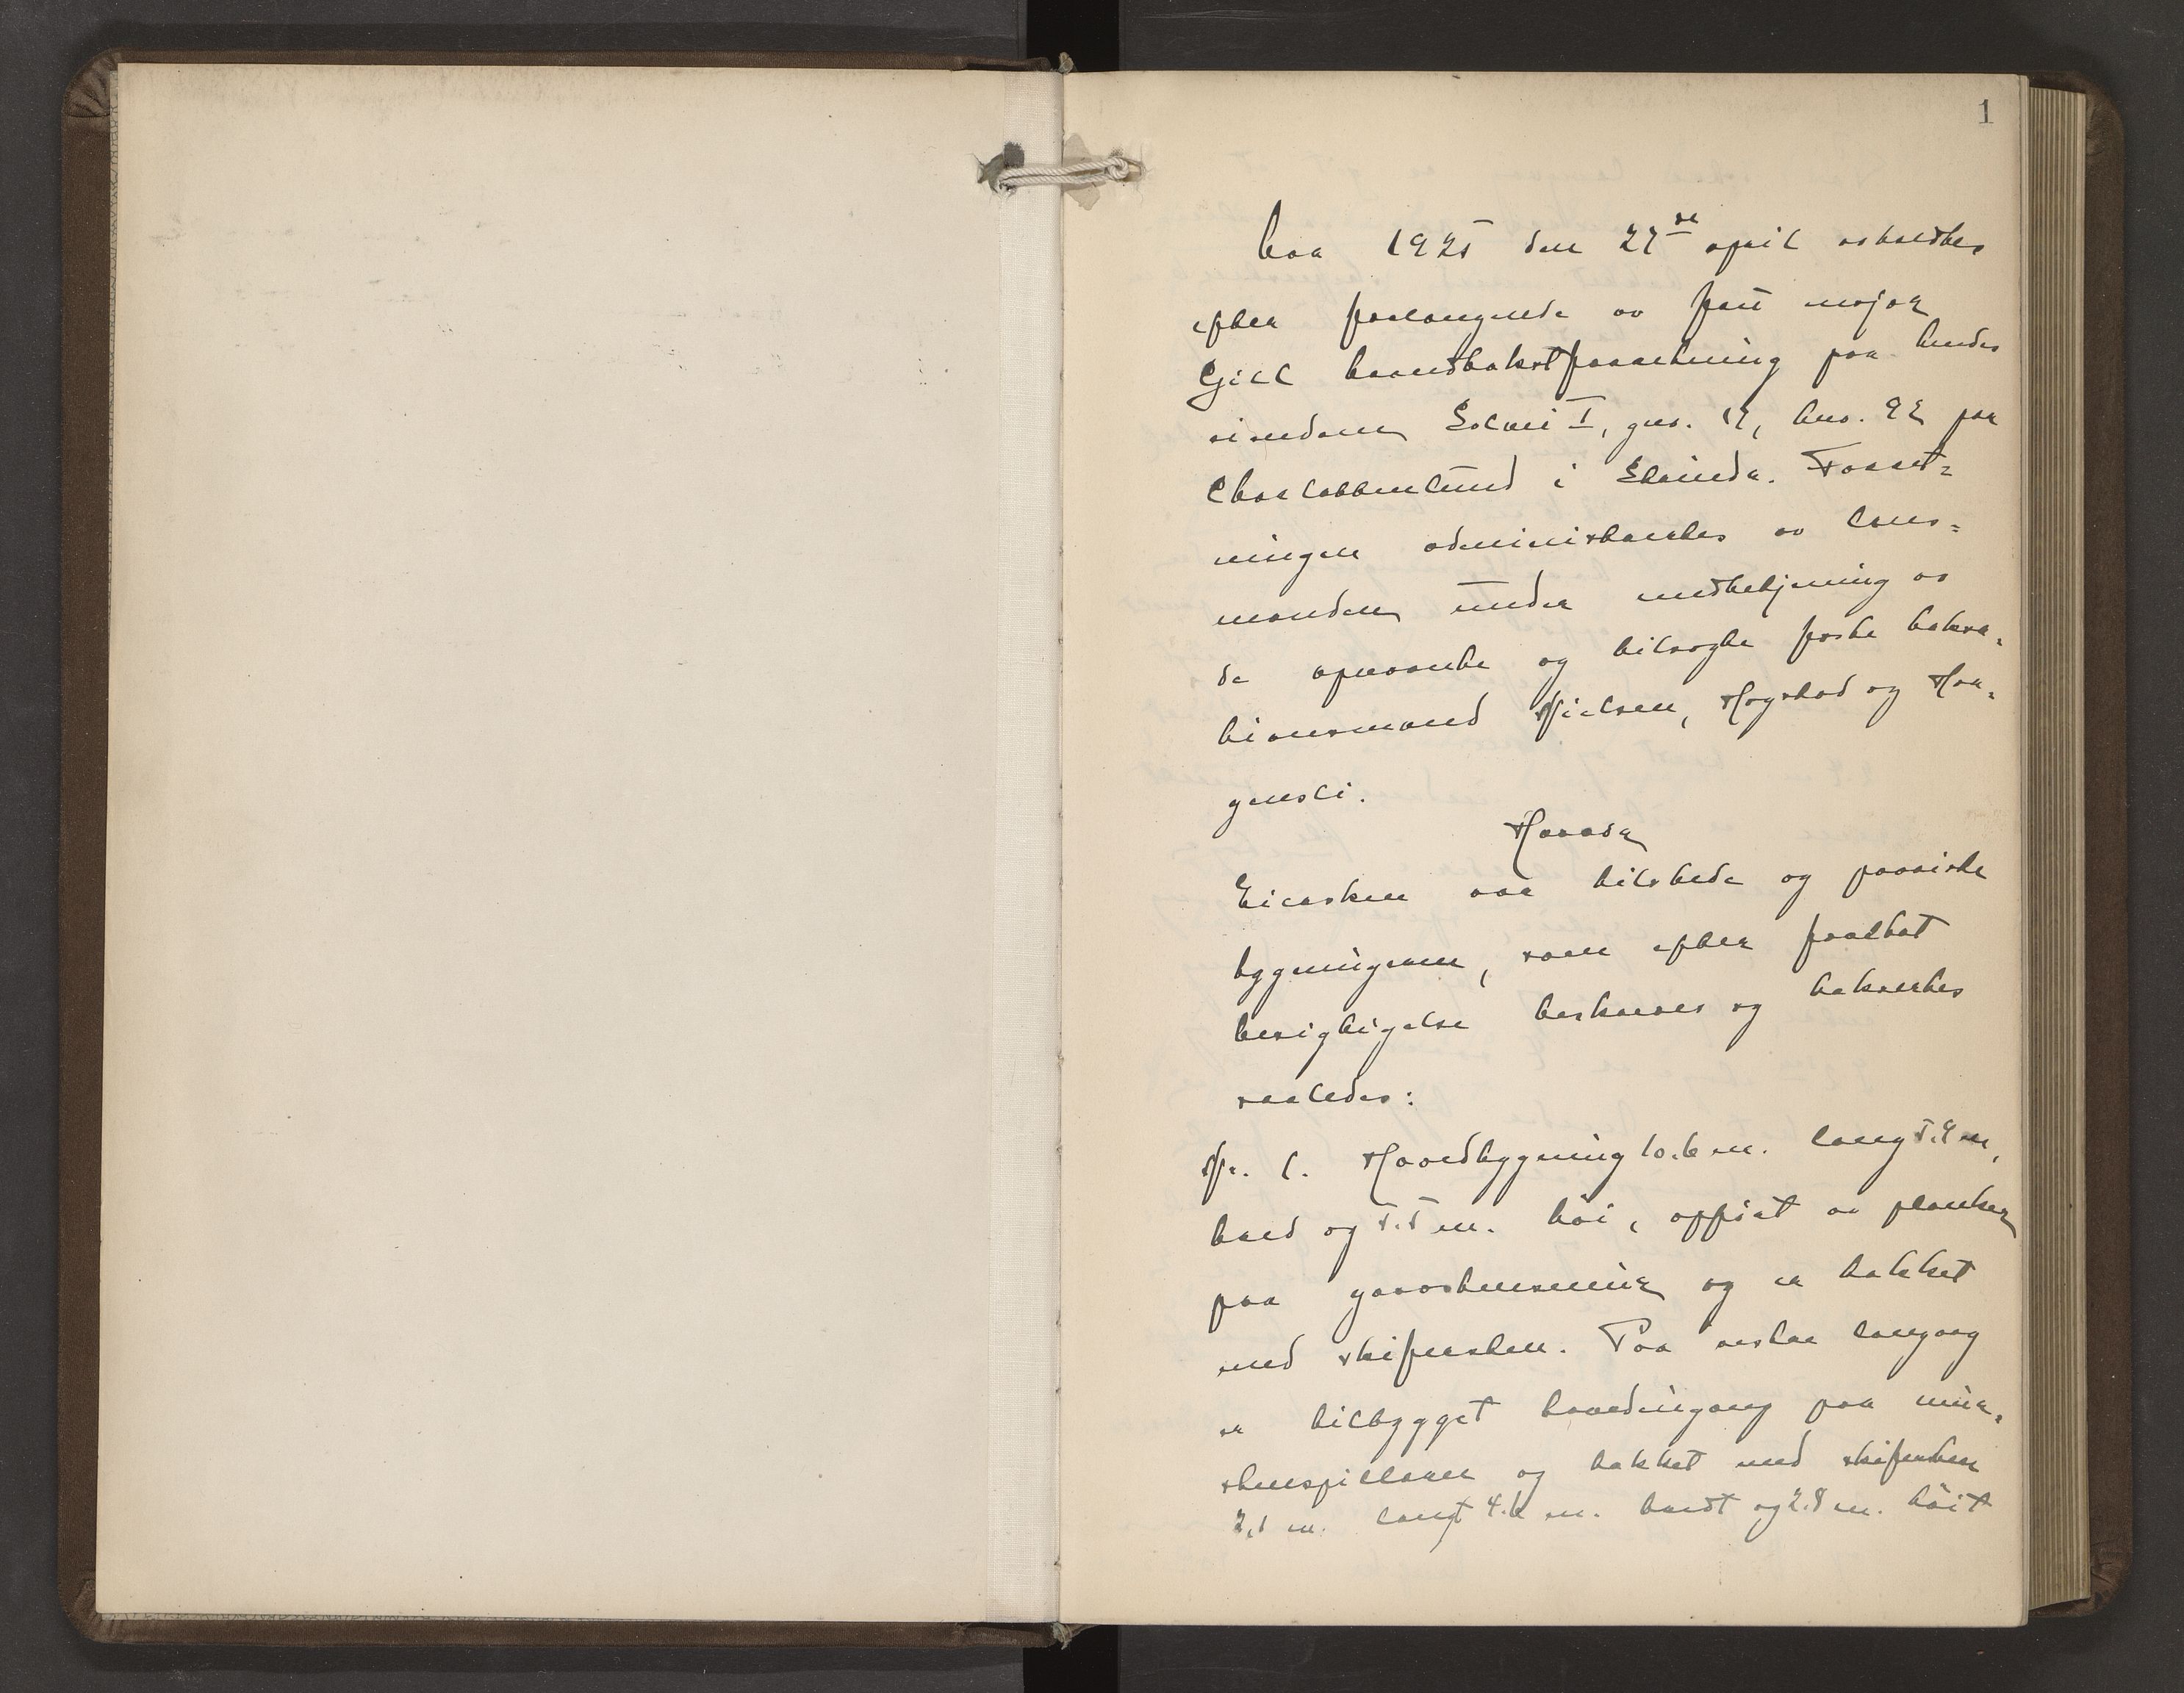 1
Aar 1925 den 27de april avholdtes
efter forlangende av frú major
Gill brandtakstforretning paa hendes
eiendom Solvei I, gnr. 17, bnr. 92 paa
Charlottenlund i Strinda. Forret=
ningen administrertes av lens=
manden under medbetjening av
de opnævnte og tilsagte faste taksa=
tionsmænd Nielsen, Hogstad og Haa=
gensli.
Herved
Eieren var tilstede og paaviste
bygningerne, som efter foretat
besigtigelse beskreves og taksertes
saaledes:
Nr. 1. Hovedbygning 10.6 m. lang 5.9 m,
bred og 5.5 m. høi, opført av planker
paa graastensmur og er tækket
med skifersten. Paa østre langvæg
er tilbygget hovedingang paa mur=
stenspillarer og tækket med skifersten
2,1 m. langt 4.6 m. bredt og 2.8 m. høit